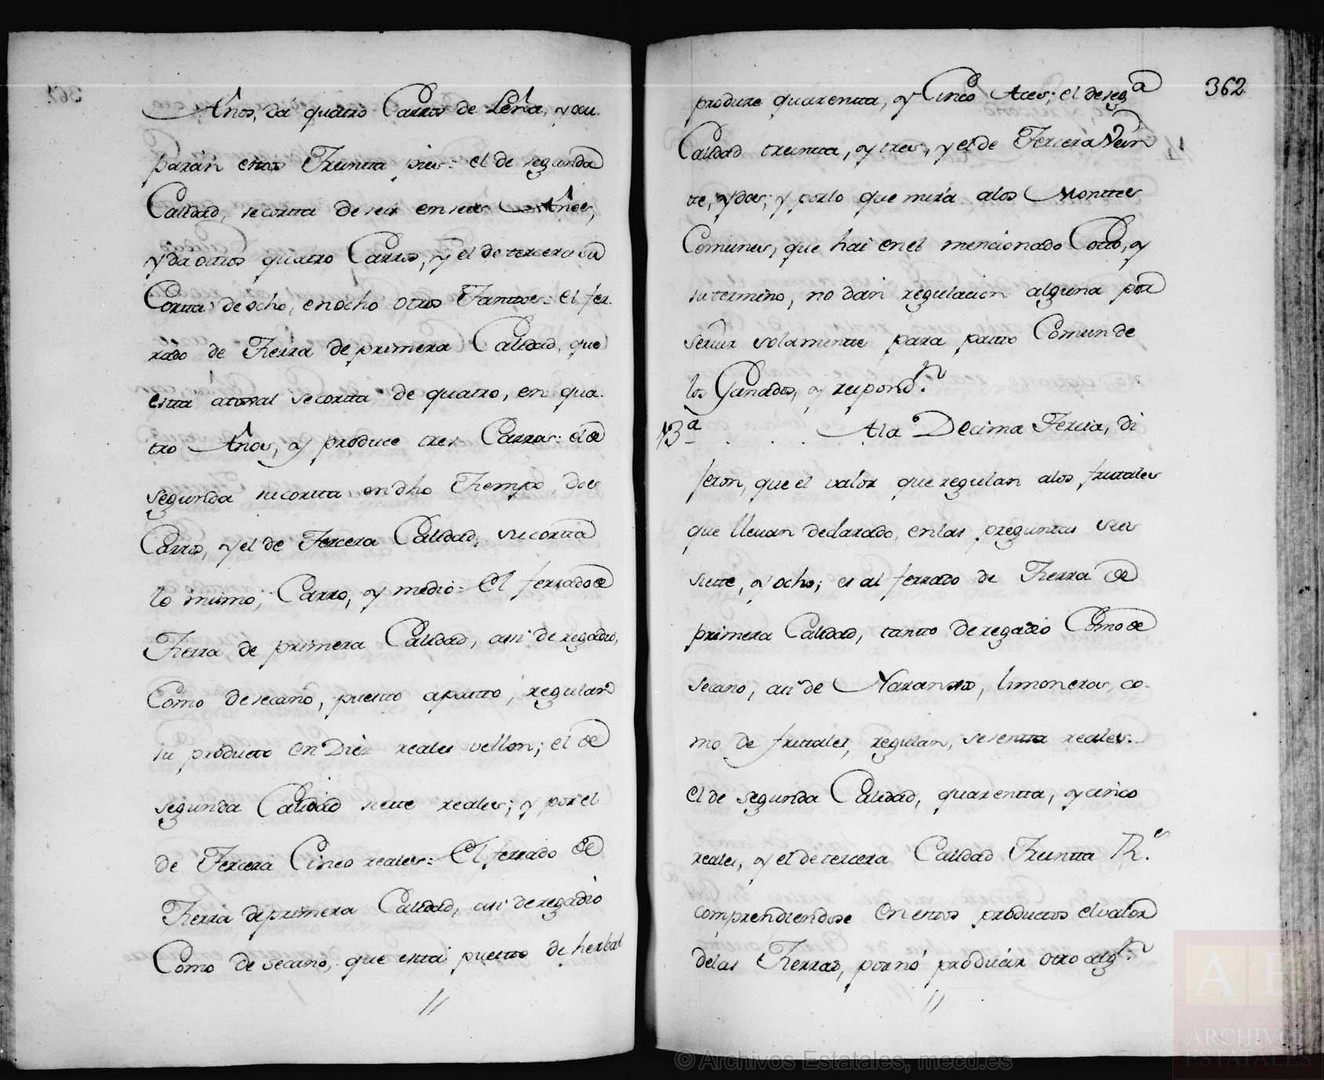 Años, da quatro Carros de Leña, y ocu-
parán estos Treintta pies= el de segunda
Calidad, se cortta de seis en seis Años,
y da ottros quatro Carros, y el de tercera su
Cortta de ocho, en ocho otros Tanttos= el fer-
rado de Tierra de primera Calidad, que
estta a toxal se cortta de quatro, en qua-
tro Años, y produce tres Carros: el de
segunda se cortta en dho Tiempo, dos
Carros, y el de Tercera Calidad, se cortta
lo mismo, Carro, y medio= El ferrado de
Tierra de primera Calidad, asi de regadio,
Como de secano, puesto a pastto, regulan
su producto en Diez reales vellon; el de
segunda Calidad siette reales; y por el
de Tercera Cinco reales= El ferrado de
Tierra de primera Calidad, asi de regadio
Como de secano, que está puesto de herbal
362
produze quarentta, y Cinco Aces; el de seg.ª
Calidad treintta, y tres, y el de Tercera Vein-
te, y dos; y por lo que mira a los Monttes
Comunes, que hai en el mencionado Cotto, y
su termino, no dan regulacion alguna por
servir solamentte para pastto Comun de
los Ganados, y respond.n
13ª A la Decima Tercia, di-
jeron, que el valor que regulan a los fruttales
que llevan declarado, en las preguntas seis
siette, y ocho; es al ferrado de Tierra de
primera Calidad, tantto de regadio Como de
secano, asi de Naranxos, limoneros, co-
mo de fruttales, regulan, sesentta reales.
El de segunda Calidad, quarentta, y cinco
reales, y el de tercera Calidad Treintta R.s
comprendiendose en estos productos el valor
de las Tierras, por no producir otro alg.n
© Archivos Estatales, mecd.es
AE
ARCHIVOS
ESTATALES